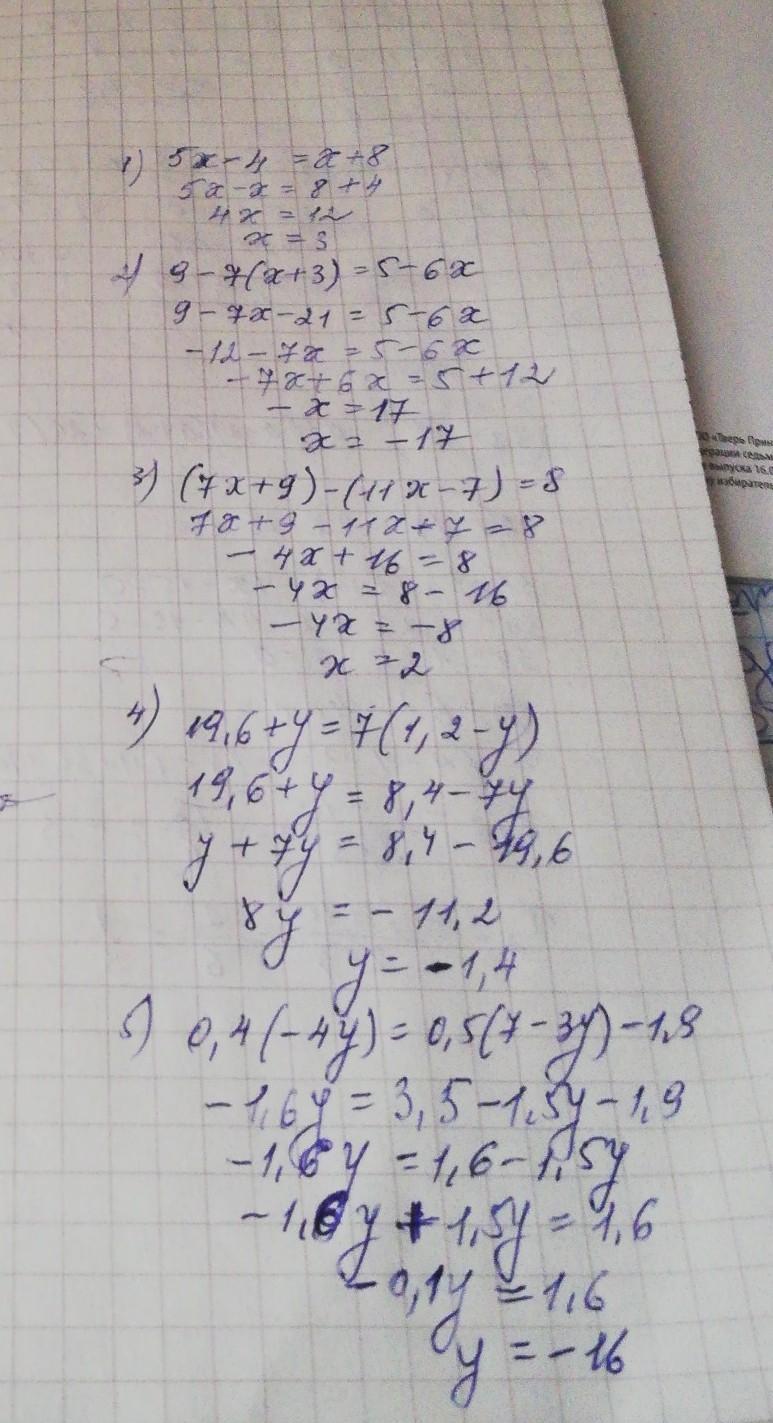 1) 5x-4 = x+8
5x-x = 8+4
4x = 12
x = 3
2) 9-7(x+3) = 5-6x
9-7x-21 = 5-6x
-12-7x = 5-6x
-7x+6x = 5+12
-x = 17
x = -17
3) (7x+9)-(11x-7) = 8
7x+9-11x+7 = 8
-4x+16 = 8
-4x = 8-16
-4x = -8
x = 2
4) 19,6+y = 7(1,2-y)
19,6+y = 8,4-7y
y+7y = 8,4-19,6
8y = -11,2
y = -1,4
5) 0,4(-4y) = 0,5(7-3y)-1,9
-1,6y = 3,5-1,5y-1,9
-1,6y = 1,6-1,5y
-1,6y+1,5y = 1,6
-0,1y = 1,6
y = -16
«Тверь
седьм
выпуска 16.0
избирател